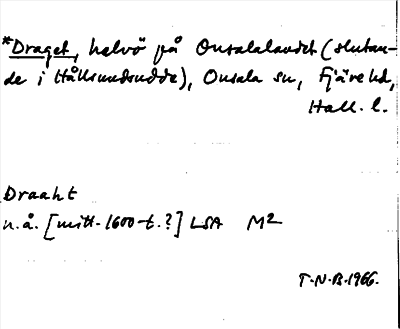 *Draget, halvö på Onsalalandet (slutan-
de i Hållsundsudde), Onsala sn, Fjäre hd,
Hall. l.
Draaht
n.å. [mitt. 1600-t.?] LSA M2
T.N.B. 1966.